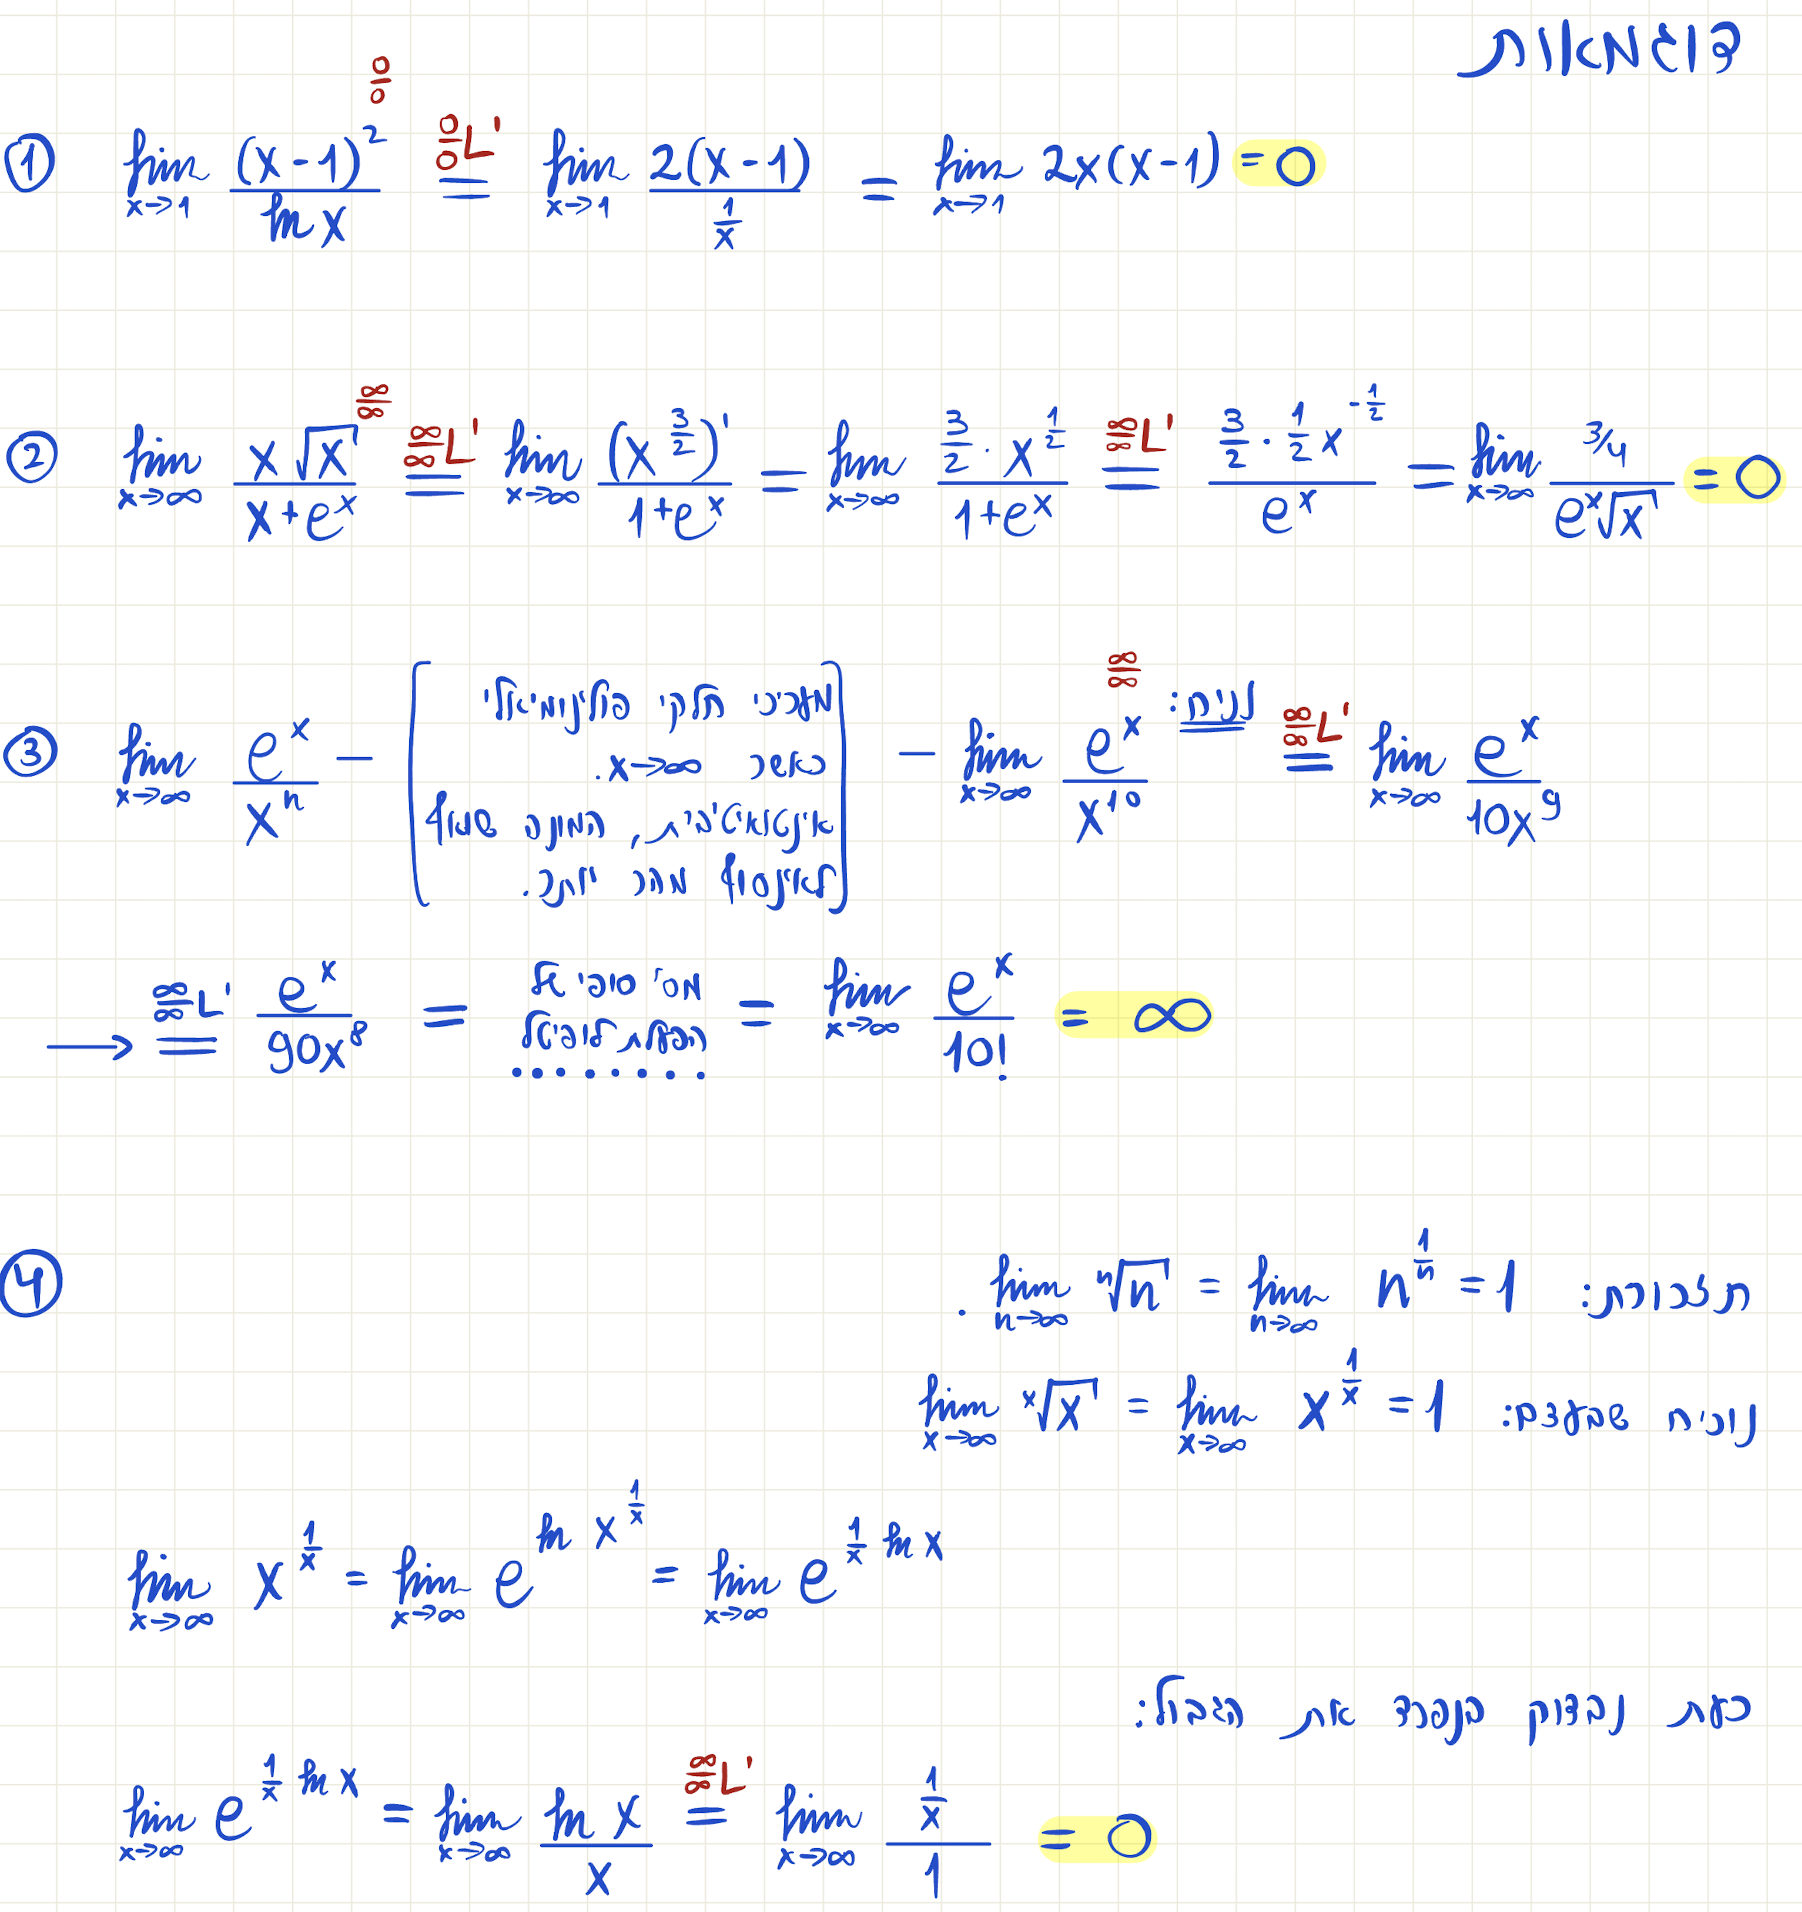 דוגמאות
① lim_{x→1} (x-1)^2 / ln x [0/0] =^{0/0 L'} lim_{x→1} 2(x-1) / (1/x) = lim_{x→1} 2x(x-1) = 0
② lim_{x→∞} x√x / (x+e^x) [∞/∞] =^{∞/∞ L'} lim_{x→∞} (x^{3/2})' / (1+e^x) = lim_{x→∞} (3/2 · x^{1/2}) / (1+e^x) =^{∞/∞ L'} (3/2 · 1/2 x^{-1/2}) / e^x = lim_{x→∞} (3/4) / (e^x √x) = 0
③ lim_{x→∞} e^x / x^n - [מעריכי חלקי פולינומיאלי
כאשר x→∞.
אינטואיטיבית, המונה שואף
לאינסוף מהר יותר.] - lim_{x→∞} e^x / x^{10} [∞/∞] נניח: =^{∞/∞ L'} lim_{x→∞} e^x / 10x^9
→ =^{∞/∞ L'} e^x / 90x^8 = מס' סופי של
הפעלת לופיטל
........ = lim_{x→∞} e^x / 10! = ∞
④ תזכורת: lim_{n→∞} ⁿ√n = lim_{n→∞} n^{1/n} = 1.
נוכיח שבעצם: lim_{x→∞} ˣ√x = lim_{x→∞} x^{1/x} = 1
lim_{x→∞} x^{1/x} = lim_{x→∞} e^{ln x^{1/x}} = lim_{x→∞} e^{1/x ln x}
כעת נבדוק בנפרד את הגבול:
lim_{x→∞} e^{1/x ln x} = lim_{x→∞} ln x / x =^{∞/∞ L'} lim_{x→∞} (1/x) / 1 = 0